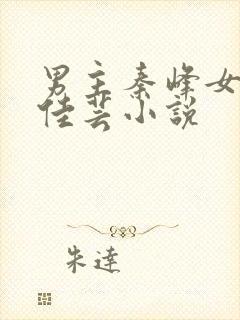 男主秦峰女
佳芸小說
朱達